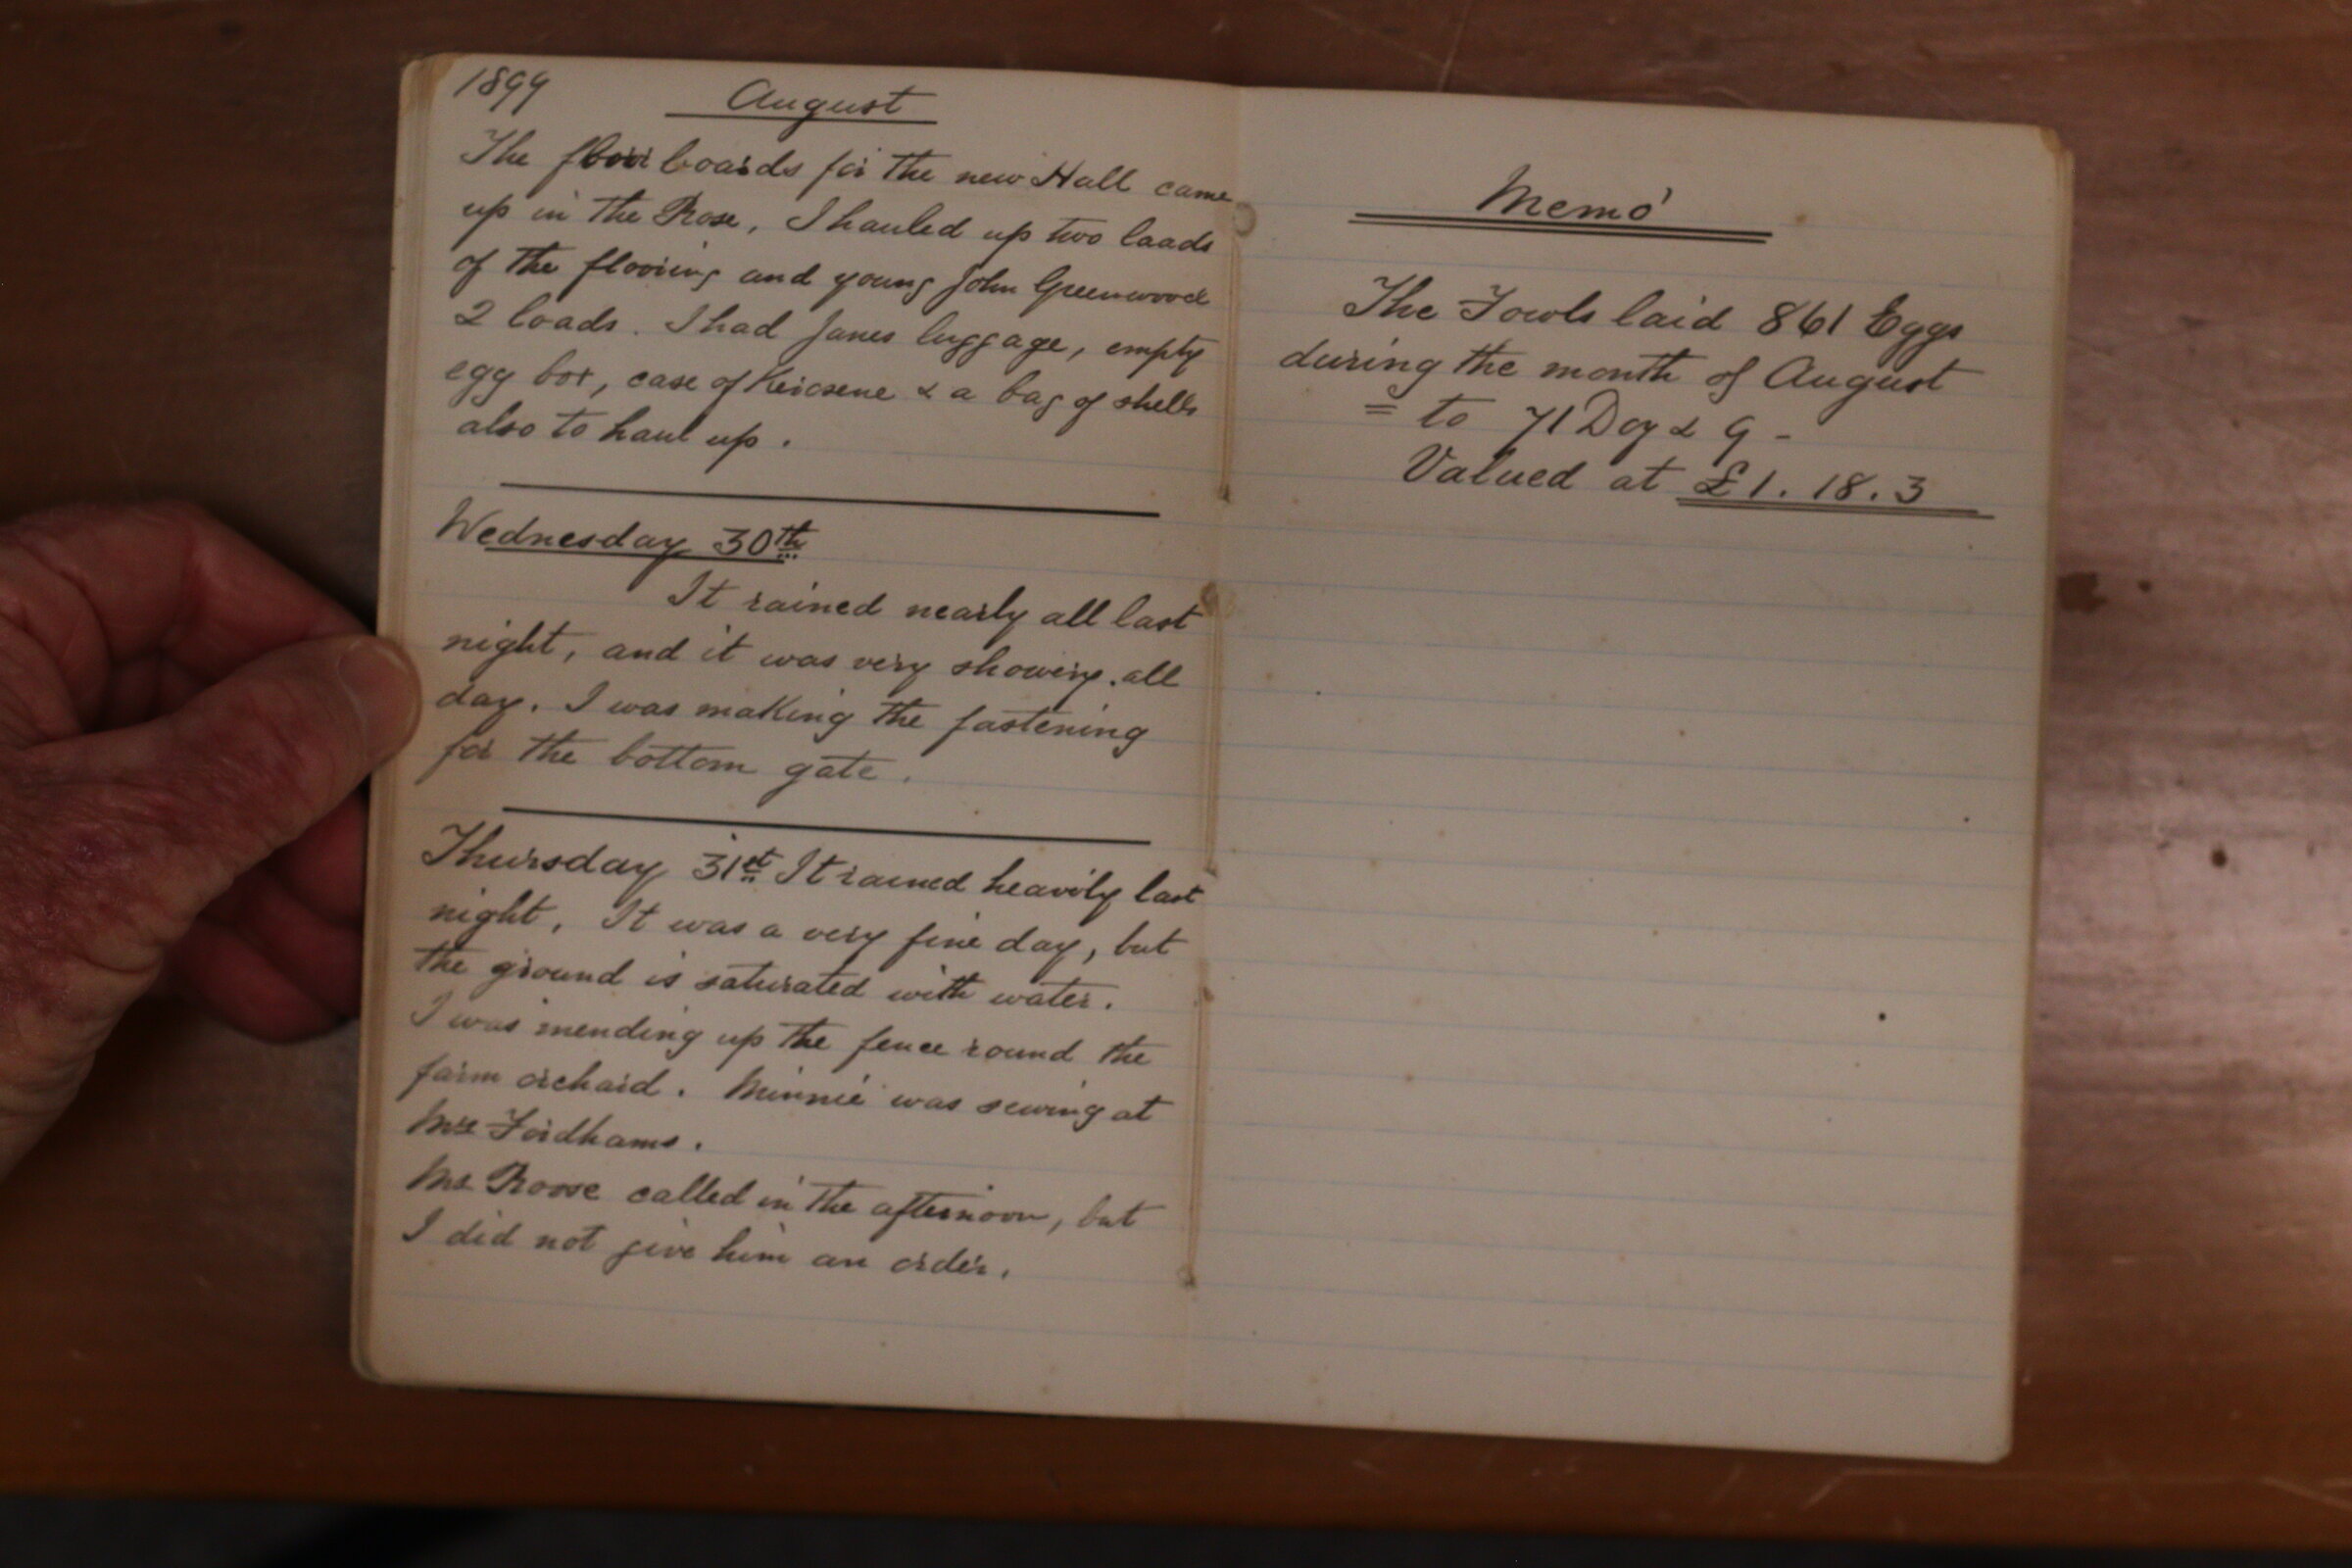 1899 August
The floor boards for the new Hall came
up in the Rose, I hauled up two loads
of the flooring and young John Greenwood
2 loads. I had Janes luggage, empty
egg box, case of Kerosene & a bag of shells
also to haul up.
Wednesday 30th
It rained nearly all last
night, and it was very showery all
day. I was making the fastening
for the bottom gate.
Thursday 31st It rained heavily last
night, It was a very fine day, but
the ground is saturated with water.
I was mending up the fence round the
farm orchard. Minnie was sewing at
Mrs Fordhams.
Mr Roose called in the afternoon, but
I did not give him an order.
Memo
The Fowls laid 861 Eggs
during the month of August
= to 71 Doz & 9 -
Valued at £1. 18. 3